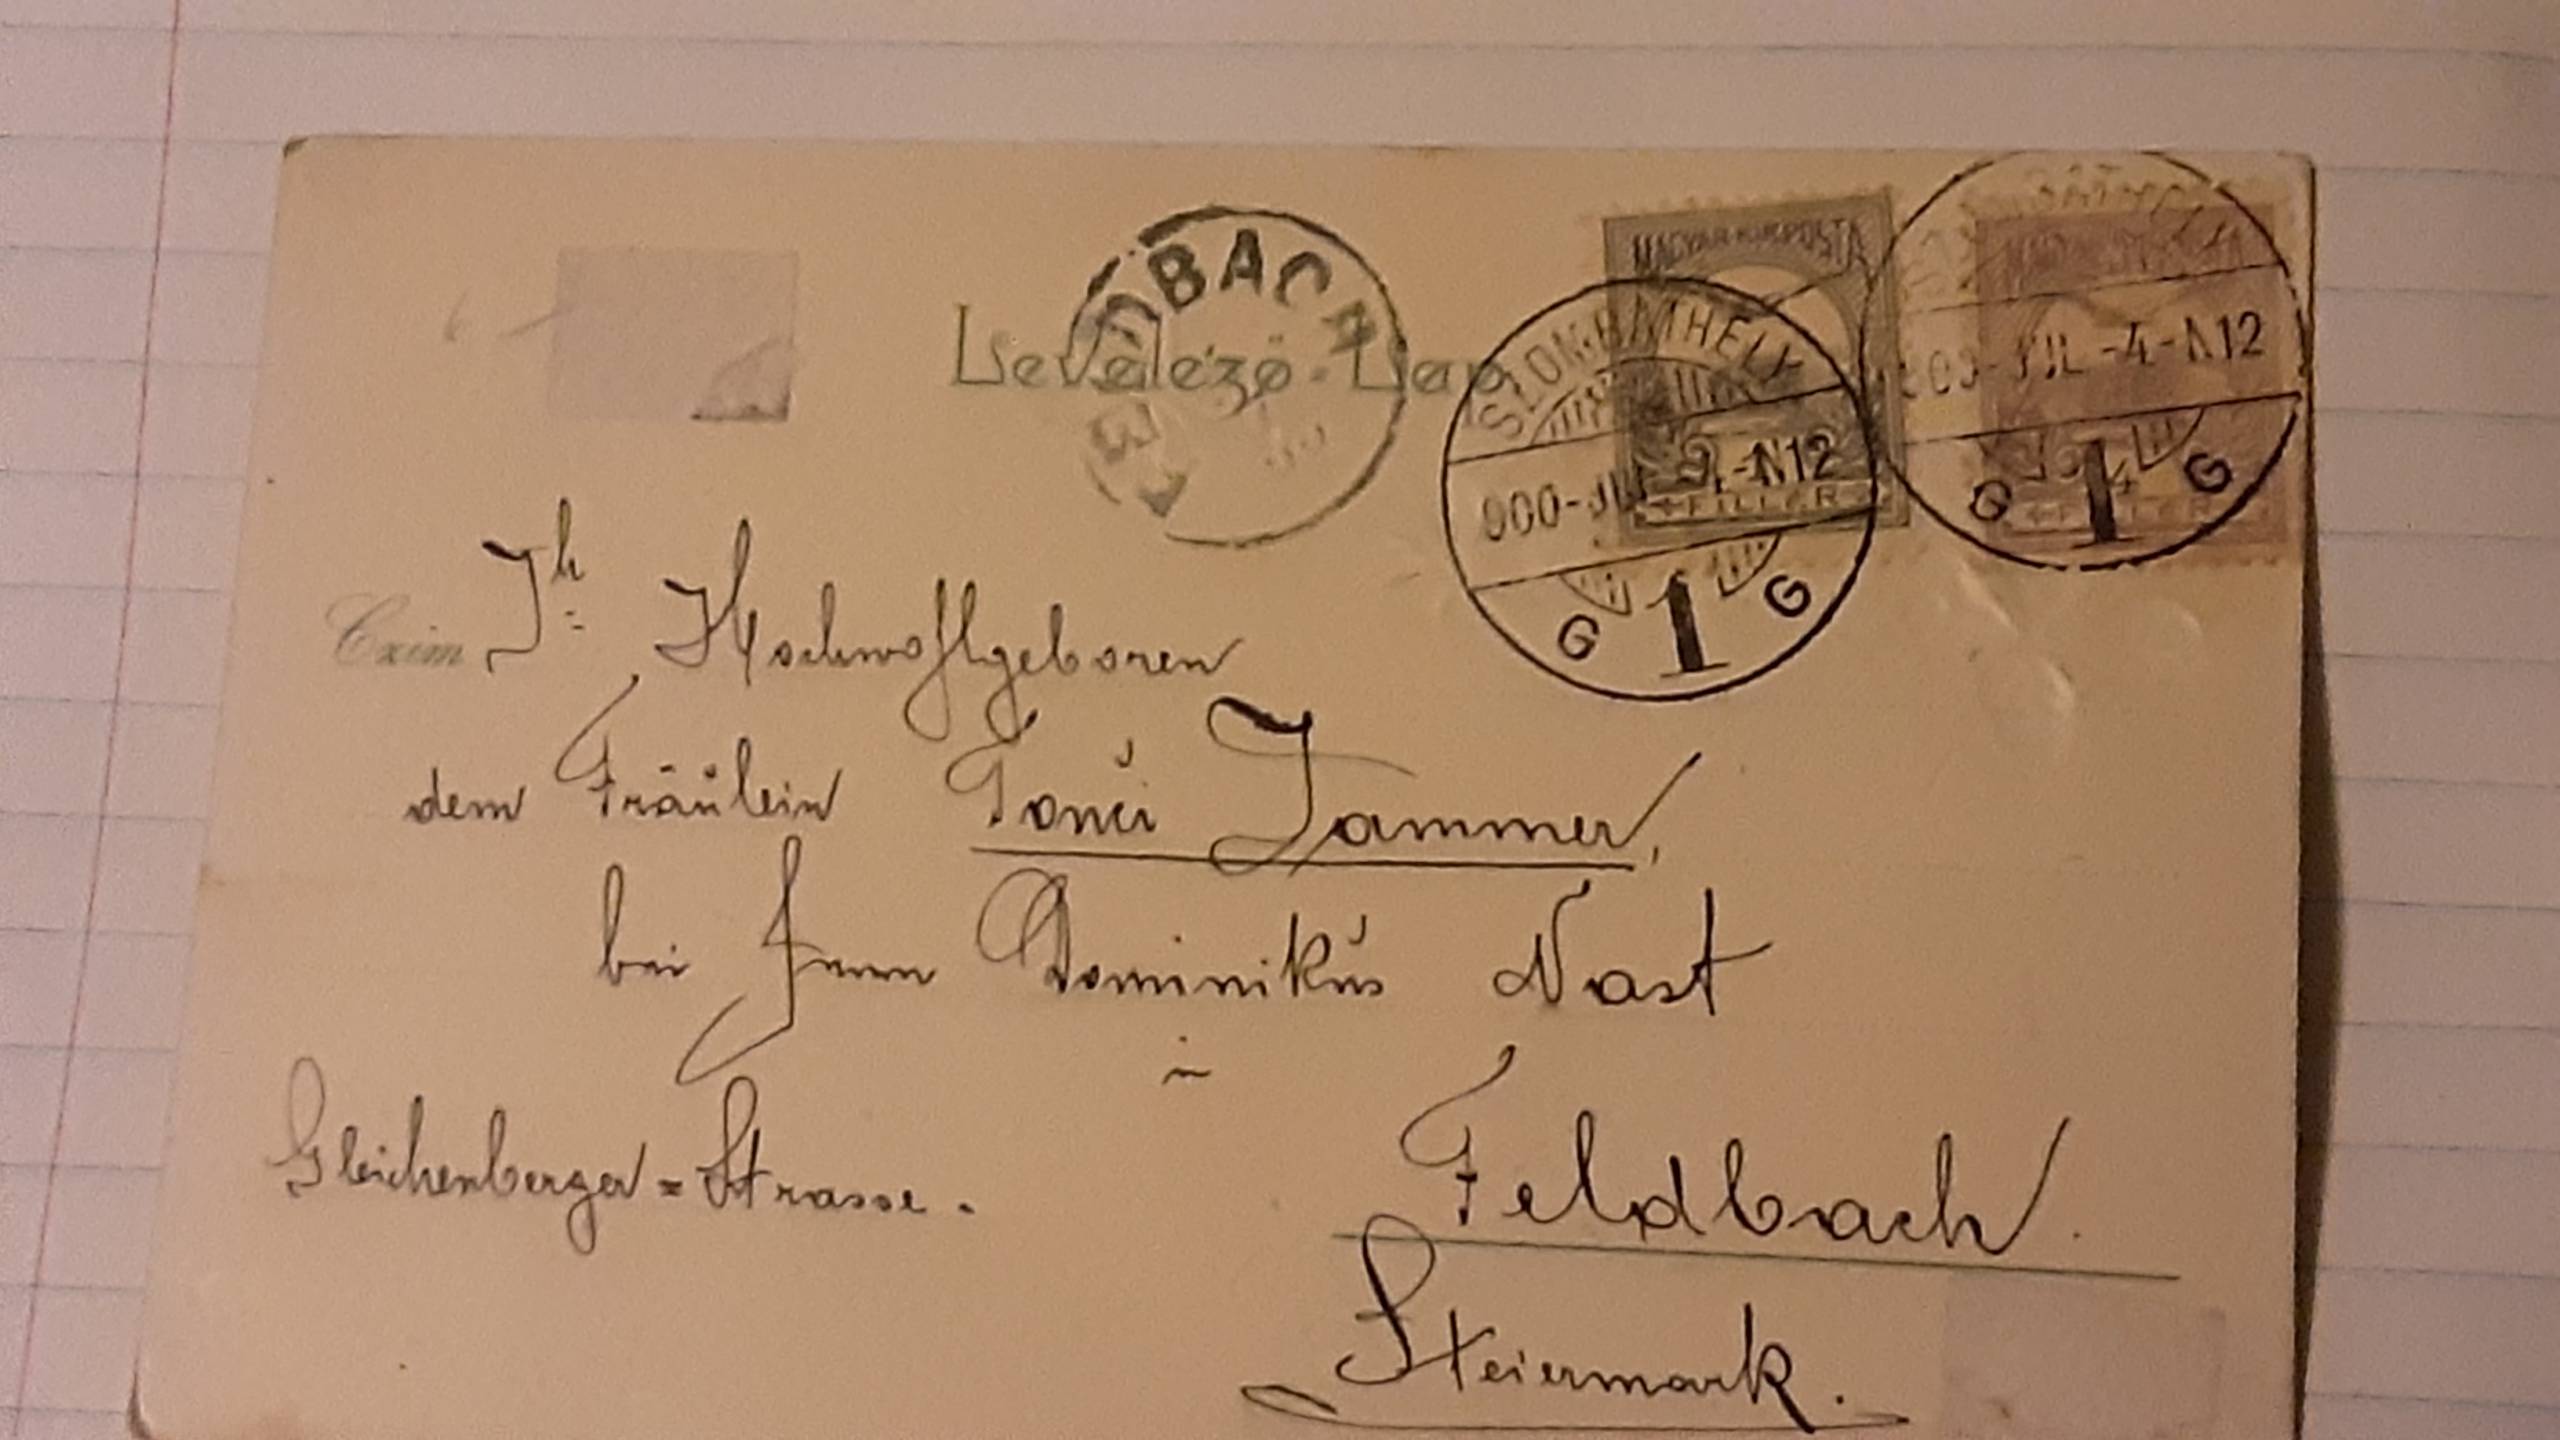 BACH
Levelező-Lap
MAGYAR KIR. POSTA
SZOMBATHELY
900-JUL-4-N12
FILLER
G 1 G
900-JUL-4-N12
G 1 G
FILLER
Czim
Ih: Hochwohlgeboren
dem Fräulein Tonci Jammer,
bei Herrn Dominikus Nast
in
Gleichenberger=Strasse.
Feldbach.
Steiermark.